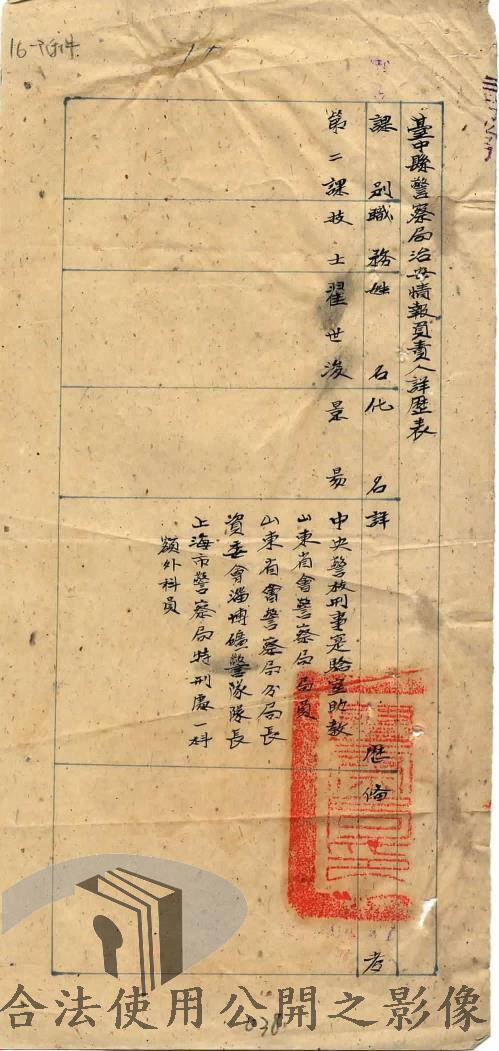 16-附件
臺中縣警察局治安情報負責人詳歷表
課別
職務
姓名
化名
詳歷
備考
第二課
技士
翟世浚
是易
中央警校刑事實驗室助教
山東省會警察局局員
山東省會警察局分局長
資委會淄博礦警隊隊長
上海市警察局特刑處一科
額外科員
合法使用公開之影像